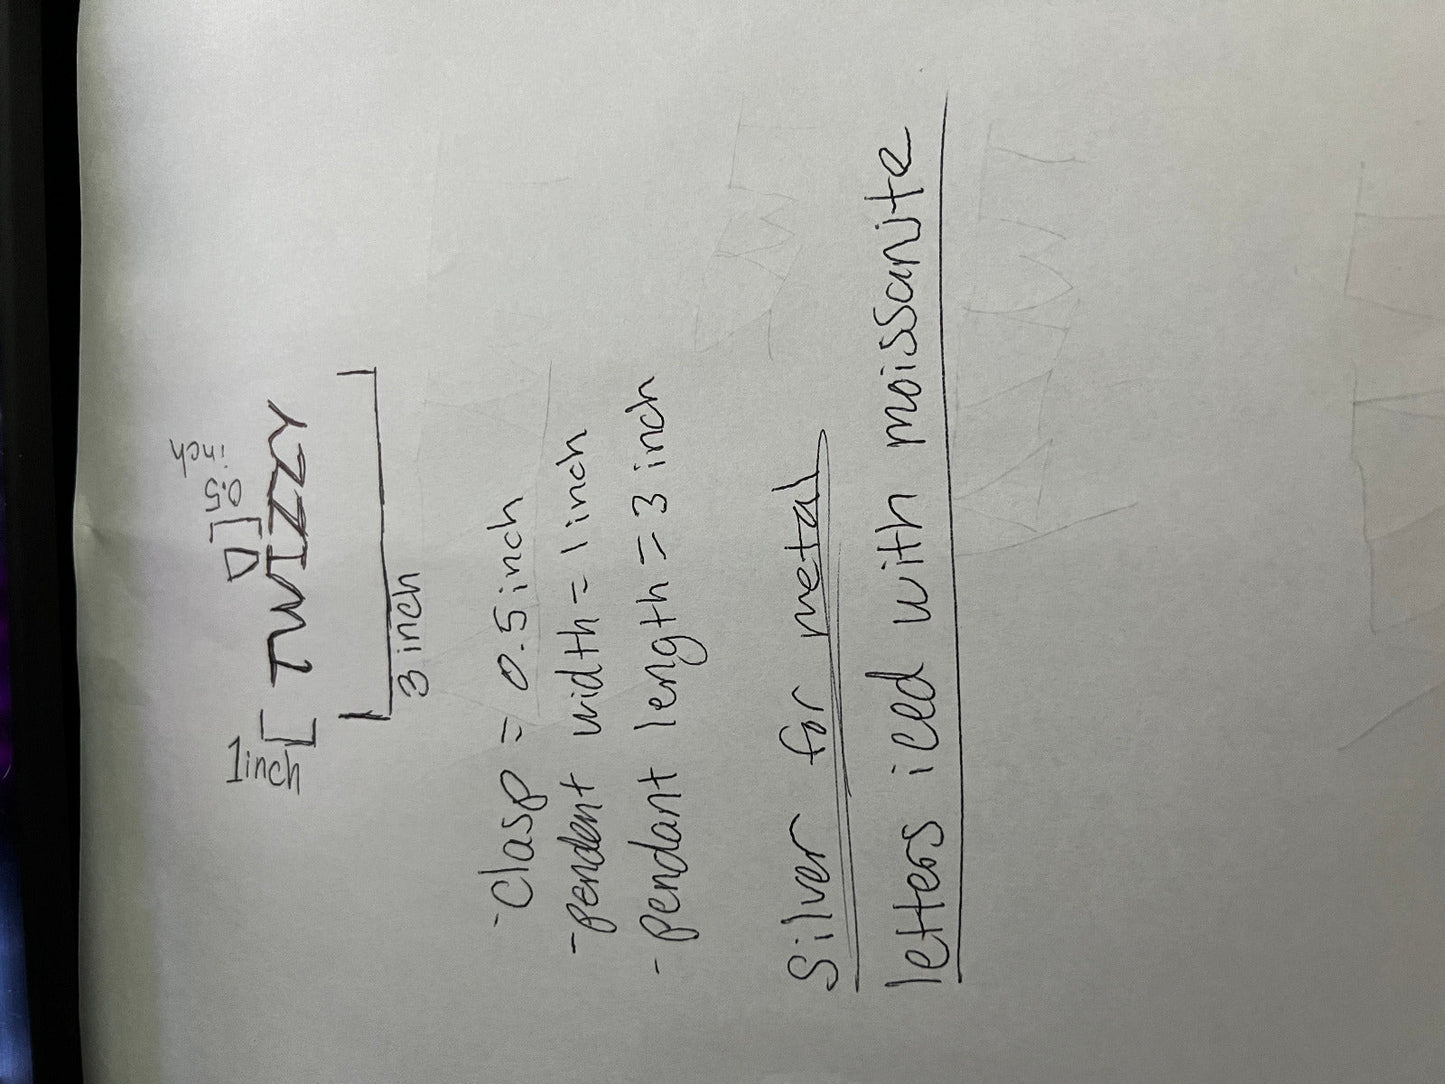 0.5
inch
1inch
TWIZZY
3 inch
- Clasp = 0.5 inch
- pendent width = 1 inch
- pendant length = 3 inch
Silver for metal
letters iced with moissanite